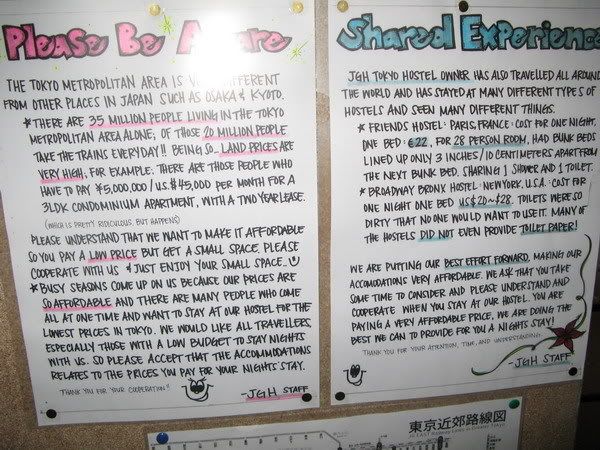 Please Be Aware
THE TOKYO METROPOLITAN AREA IS VERY DIFFERENT
FROM OTHER PLACES IN JAPAN SUCH AS OSAKA & KYOTO.
* THERE ARE 35 MILLION PEOPLE LIVING IN THE TOKYO
METROPOLITAN AREA ALONE, OF THOSE 20 MILLION PEOPLE
TAKE THE TRAINS EVERYDAY!! BEING SO.. LAND PRICES ARE
VERY HIGH, FOR EXAMPLE: THERE ARE THOSE PEOPLE WHO
HAVE TO PAY ¥5,000,000/US$45,000 PER MONTH FOR A
3LDK CONDOMINIUM APARTMENT, WITH A TWO YEAR LEASE.
(WHICH IS PRETTY RIDICULOUS, BUT HAPPENS)
PLEASE UNDERSTAND THAT WE WANT TO MAKE IT AFFORDABLE
SO YOU PAY A LOW PRICE BUT GET A SMALL SPACE, PLEASE
COOPERATE WITH US & JUST ENJOY YOUR SMALL SPACE..
* BUSY SEASONS COME UP ON US BECAUSE OUR PRICES ARE
SO AFFORDABLE AND THERE ARE MANY PEOPLE WHO COME
ALL AT ONE TIME AND WANT TO STAY AT OUR HOSTEL FOR THE
LOWEST PRICES IN TOKYO. WE WOULD LIKE ALL TRAVELLERS,
ESPECIALLY THOSE WITH A LOW BUDGET TO STAY NIGHTS
WITH US. SO PLEASE ACCEPT THAT THE ACCOMMODATIONS
RELATES TO THE PRICES YOU PAY FOR YOUR NIGHTS STAY.
THANK YOU FOR YOUR COOPERATION!!
-JGH STAFF
Shared Experience
JGH TOKYO HOSTEL OWNER HAS ALSO TRAVELLED ALL AROUND
THE WORLD AND HAS STAYED AT MANY DIFFERENT TYPES OF
HOSTELS AND SEEN MANY DIFFERENT THINGS.
* FRIENDS HOSTEL: PARIS, FRANCE: COST FOR ONE NIGHT,
ONE BED: €22, FOR 28 PERSON ROOM, HAD BUNK BEDS
LINED UP ONLY 3 INCHES/10 CENTIMETERS APART FROM
THE NEXT BUNK BED. SHARING 1 SHOWER AND 1 TOILET.
* BROADWAY BRONX HOSTEL: NEW YORK, U.S.A: COST FOR
ONE NIGHT ONE BED US$20~$28. TOILETS WERE SO
DIRTY THAT NO ONE WOULD WANT TO USE IT. MANY OF
THE HOSTELS DID NOT EVEN PROVIDE TOILET PAPER!
WE ARE PUTTING OUR BEST EFFORT FORWARD, MAKING OUR
ACCOMODATIONS VERY AFFORDABLE. WE ASK THAT YOU TAKE
SOME TIME TO CONSIDER AND PLEASE UNDERSTAND AND
COOPERATE WHEN YOU STAY AT OUR HOSTEL. YOU ARE
PAYING A VERY AFFORDABLE PRICE, WE ARE DOING THE
BEST WE CAN TO PROVIDE FOR YOU A NIGHTS STAY!
THANK YOU FOR YOUR ATTENTION, TIME, AND UNDERSTANDING.
-JGH STAFF
東京近郊路線図